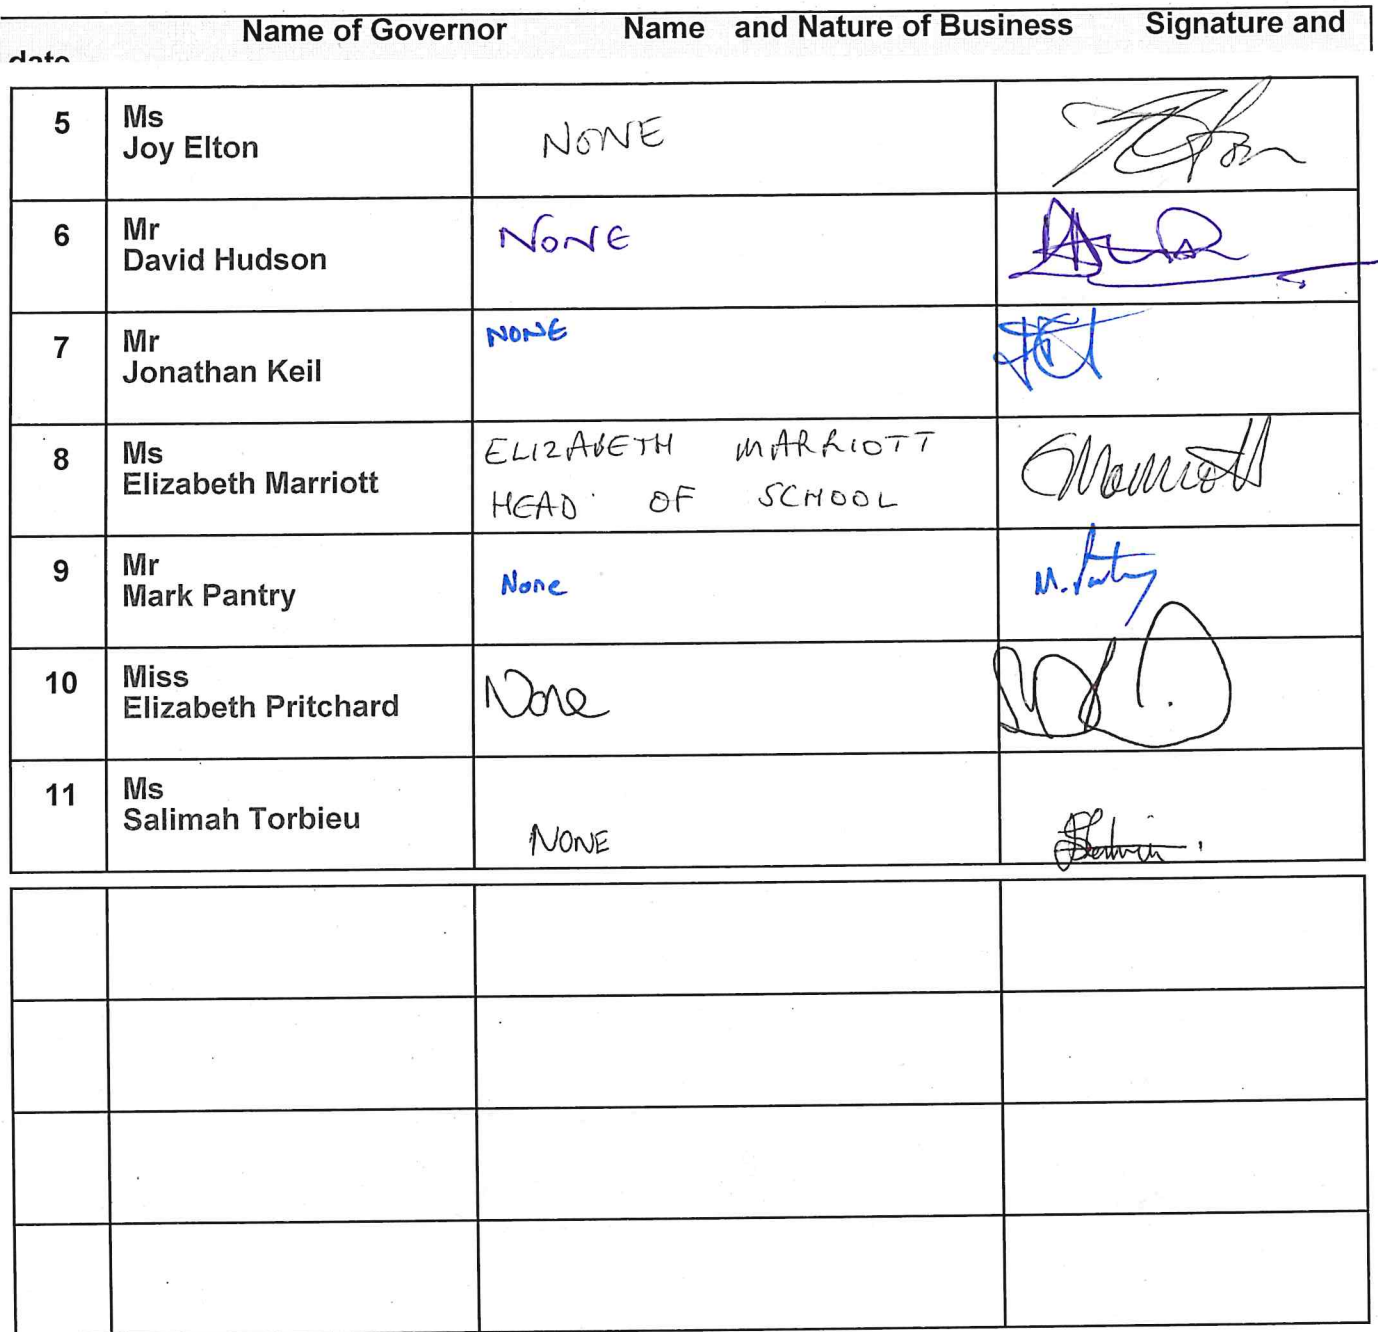 Name of Governor Name and Nature of Business Signature and
date
5 Ms
Joy Elton NONE
6 Mr
David Hudson NONE
7 Mr
Jonathan Keil NONE
8 Ms
Elizabeth Marriott ELIZABETH MARRIOTT
HEAD OF SCHOOL
EMarriott
9 Mr
Mark Pantry None
M. Pantry
10 Miss
Elizabeth Pritchard None
11 Ms
Salimah Torbieu
NONE